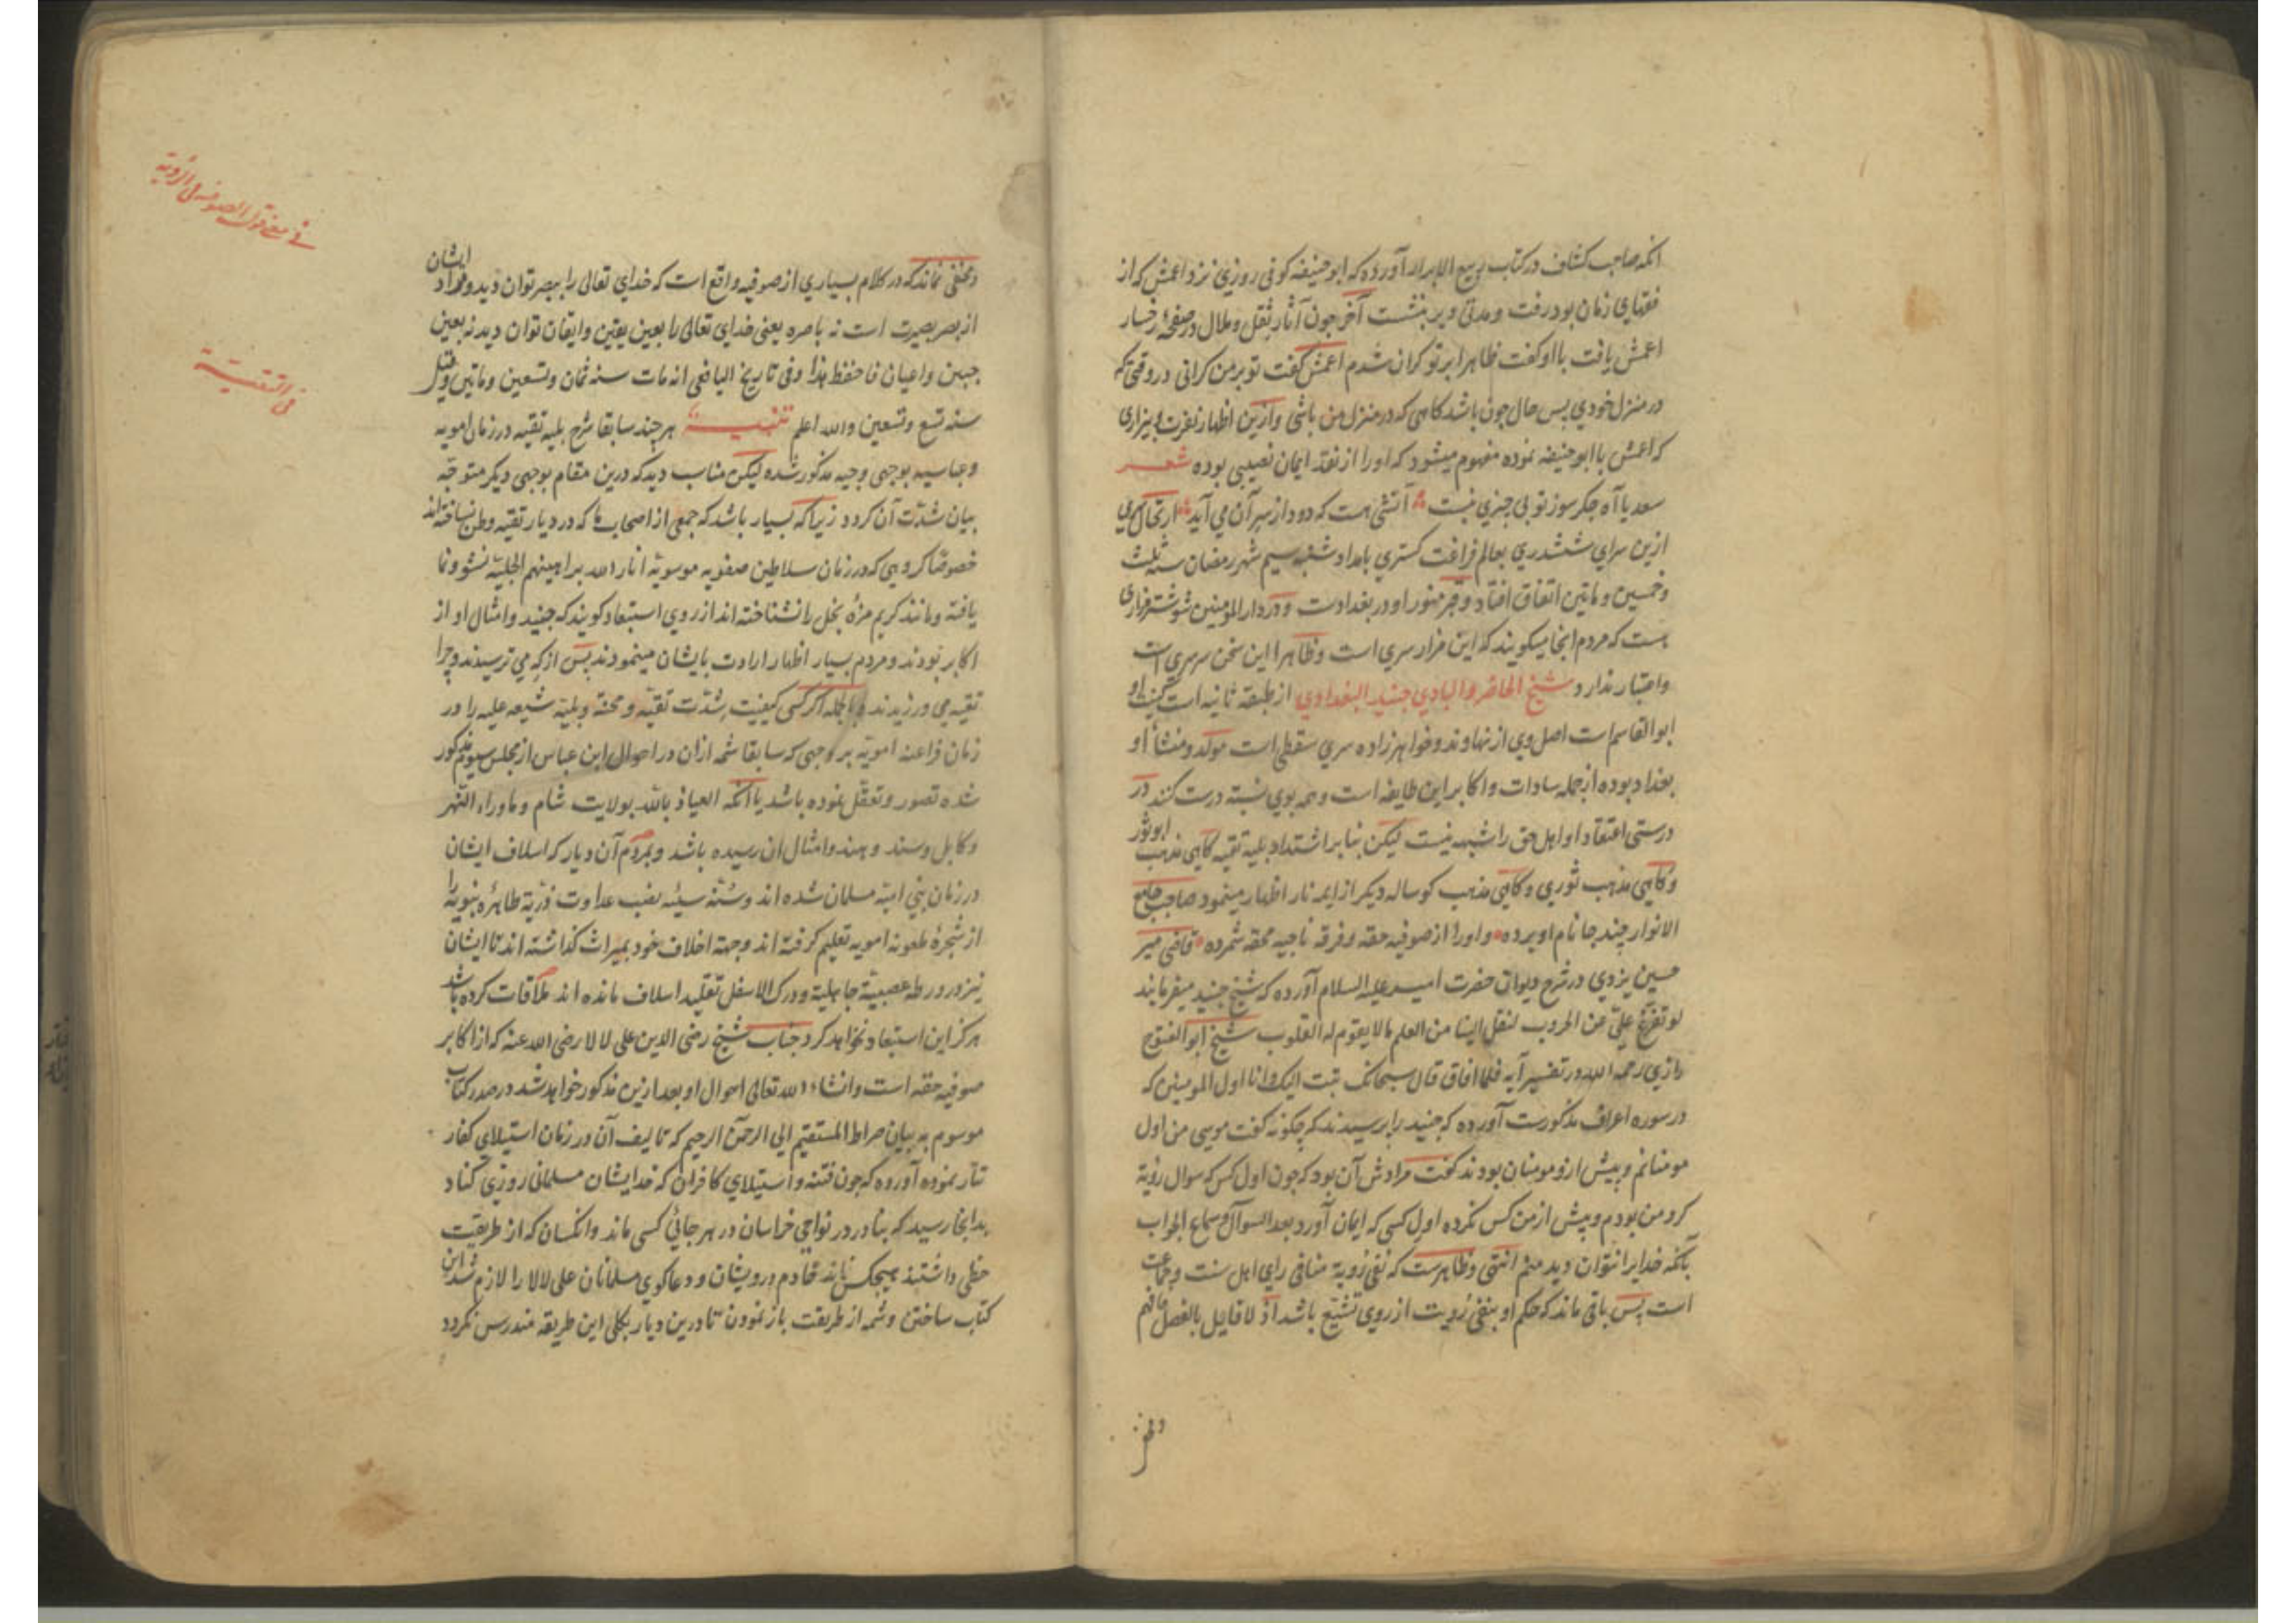 آنکه صاحب کشاف در کتاب ربیع الابرار آورده که ابو حنیفه کوفی روزی نزد اعمش که از
فقهای زمان بود رفت و مدتی دیر بنشست آخر چون آثار ثقل و ملال در صفحه رخسار
اعمش یافت با او کفت ظاهرا بر تو کران شدم اعمش کفت تو بر من کرانی در وقتی که
در منزل خودی پس حال چون باشد کاهی که در منزل من باشی و ازین اظهار نفرت و بیزاری
که اعمش با ابو حنیفه نموده مفهوم میشود که او را از نقد ایمان نصیبی بوده شعر
سعدیا آه جکر سوز تو بی چیزی نیست آتشی هست که دود از سر آن می آید ارتحال سری
ازین سرای ششدری بعالم فراغت کستری بامداد شنبه سیم شهر رمضان سنه ثلث
و خمسین و ماتین اتفاق افتاد و قبر منور او در بغدادست و در دار المومنین شوشتر مزاری
هست که مردم آنجا میکویند که این مزار سری است و ظاهرا این سخن سرسری است
و اعتبار ندارد شیخ الحاضر و البادی جنید البغدادی از طبقه ثانیه است کنیت او
ابو القاسم است اصل وی از نهاوند و خواهرزاده سری سقطی است مولد و منشأ او
بغداد بوده از جمله سادات و اکابر این طایفه است و همه بوی نسبه درست کنند در
درستی اعتقاد او اهل حق را شبهه نیست لیکن بنا بر اشتداد بلیه تقیه کاهی مذهب ابو ثور
و کاهی مذهب ثوری و کاهی مذهب کوساله دیکر از ایمه نار اظهار مینمود صاحب جامع
الانوار چند جا نام او برده و او را از صوفیه حقه و فرقه ناجیه محقه شمرده قاضی میر
حسین یزدی در شرح دیوان حضرت امیر علیه السلام آورده که شیخ جنید میفرمایند
لو تفرغ علیّ عن الحروب لنقل الینا من العلم ما لا یقوم له القلوب شیخ ابو الفتوح
رازی رحمه الله در تفسیر آیه فلما افاق قال سبحانک تبت الیک و انا اول المومنین که
در سوره اعراف مذکورست آورده که جنید را پرسیدند که چکونه کفت موسی من اول
مومنانم و پیش از و مومنان بودند کفت مرادش آن بود که چون اول کس که سوال رؤیة
کرد من بودم و پیش از من کس نکرده اول کسی که ایمان آورد بعد السوال و سماع الجواب
بآنکه خدایرا نتوان دید منم انتهی و ظاهرست که نفی رؤیة منافی رای اهل سنت و جماعت
است پس باقی ماند که حکم او بنفی رؤیت از روی تشیع باشد اذ لا قایل بالفصل فافهم
و مخفی
و مخفی نماند که در کلام بسیاری از صوفیه واقع است که خدای تعالی را ببصر توان دید و مراد ایشان
از بصر بصیرت است نه باصره یعنی خدای تعالی را بعین یقین و ایقان توان دید نه بعین
جبین و اعیان فاحفظ هذا و فی تاریخ الیافعی انه مات سنه ثمان و تسعین و ماتین و قیل
سنه تسع و تسعین و الله اعلم تنبیه هر چند سابقا شرح بلیه تقیه در زمان امویه
و عباسیه بوجهی وجیه مذکور شده لیکن مناسب دید که درین مقام بوجهی دیکر متوجّه
بیان شدّت آن کردد زیرا که بسیار باشد که جمعی از اصحاب ما که در دیار تقیه وطن نساخته اند
خصوصا کروهی که در زمان سلاطین صفویه موسویه انار الله براهینهم الجلیّه نشو و نما
یافته و مانند کریم مزه بخل را نشناخته اند از روی استبعاد کویند که جنید و امثال او از
اکابر بودند و مردم بسیار اظهار ارادت بایشان مینمودند پس از که می ترسیدند و چرا
تقیه می ورزیدند و بالجمله اکر کسی کیفیت شدّت تقیّه و محنة و بلیّه شیعه علیه را در
زمان فراعنه امویه بر وجهی که سابقا شمه ازان در احوال ابن عباس از مجلس سیوم مذکور
شده تصور و تعقّل نموده باشد یا آنکه العیاذ بالله بولایت شام و ماوراء النّهر
و کابل و سند و هند و امثال ان رسیده باشد و بمردم آن دیار که اسلاف ایشان
در زمان بنی امیّه مسلمان شده اند و سُنّه سیّئه نصب عداوت ذرّیة طاهره نبویه را
از شجره ملعونه امویه تعلیم کرفته اند و جهة اخلاف خود بمیراث کذاشته اند تا ایشان
نیز در ورطه عصبیّة جاهلیة و درک الاسفل تقلید اسلاف مانده اند ملاقات کرده باشد
هرکز این استبعاد نخواهد کرد جناب شیخ رضی الدین علی لالا رضی الله عنه که از اکابر
صوفیه حقه است و انشاء الله تعالی احوال او بعد ازین مذکور خواهد شد در صدر کتاب
موسوم به بیان صراط المستقیم الی الرحمن الرحیم که تالیف آن در زمان استیلای کفار
تتار نموده آورده که چون فتنه و استیلای کافران که خدا یشان مسلمانی روزی کناد
بدانجا رسید که بنادر در نواحی خراسان در هر جائی کسی ماند و آنکسان که از طریقت
حظی داشتند هیچکس نماند خادم درویشان و دعاکوی مسلمانان علی لالا را لازم شد این
کتاب ساختن و شمه از طریقت باز نمودن تا درین دیار بکلی این طریقه مندرس نکردد
فی معنی قول الصوفیه فی الرؤیه
فی التقیة